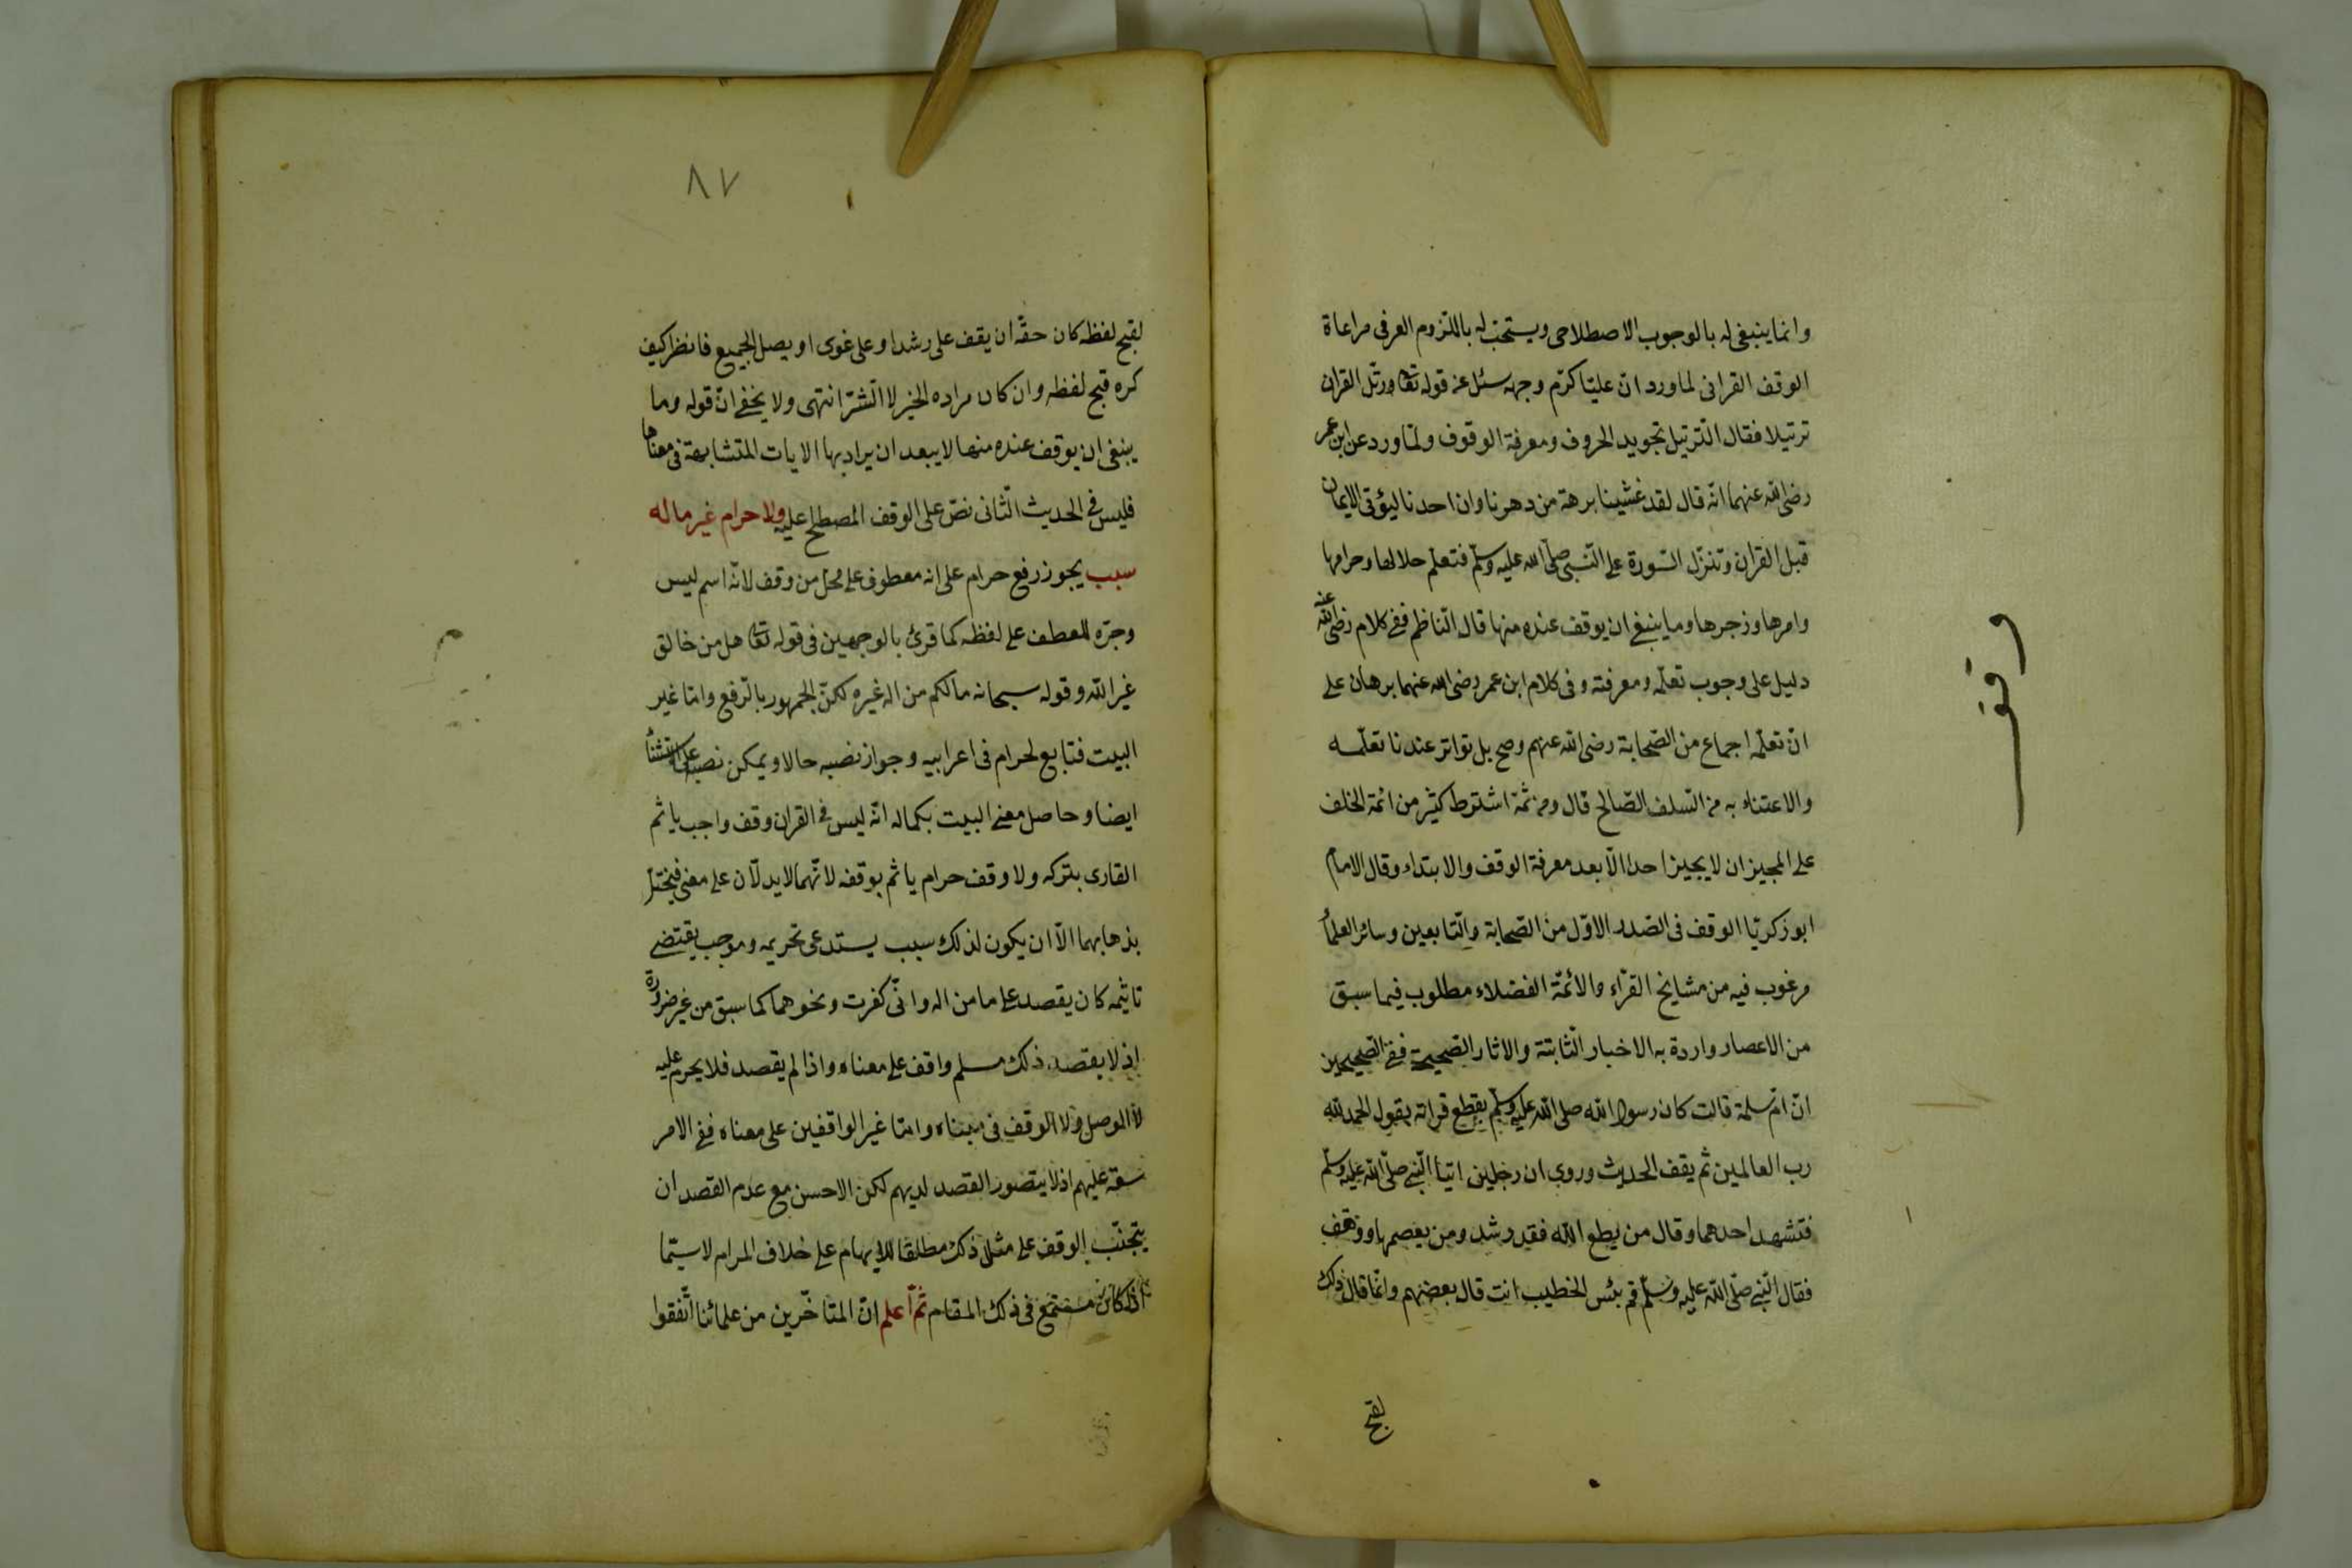 وانما ينبغى له بالوجوب الاصطلاحى ويستحب له باللزوم العرفى مراعاة
الوقف القرانى لما ورد ان عليّا كرّم وجهه سئل عن قوله تعا ورتّل القران
ترتيلا فقال الترتيل تجويد الحروف ومعرفة الوقوف ولما ورد عن ابن عمر
رضى الله عنهما انّه قال لقد غشينا برهة من دهرنا وان احدنا ليؤتى الايمان
قبل القران وتنزل السّورة على النّبى صلّى الله عليه وسلّم فتعلّم حلالها وحرامها
وامرها وزجرها وما ينبغى ان يوقف عنده منها قال النّاظم ففى كلام رضى الله عنه
دليل على وجوب تعلّمه ومعرفته وفى كلام ابن عمر رضى الله عنهما برهان على
انّ تعلّمه اجماع من الصّحابة رضى الله عنهم وصح بل تواتر عندنا تعلّمه
والاعتناء به من السّلف الصّالح قال ومن ثمّة اشترط كثير من ائمة الخلف
على المجيز ان لا يجيز احدا الّا بعد معرفة الوقف والابتداء وقال الامام
ابو زكريّا الوقف فى الصّدر الاوّل من الصّحابة والتّابعين وسائر العلماء
مرغوب فيه من مشايخ القرّاء والائمّة الفضلاء مطلوب فيما سبق
من الاعصار واردة به الاخبار الثّابتة والاثار الصّحيحة ففى الصّحيحين
انّ امّ سلمة قالت كان رسول الله صلى الله عليه وسلّم يقطع قراته يقول الحمد لله
رب العالمين ثم يقف الحديث وروى ان رجلين اتيا النّبى صلّى الله عليه وسلّم
فتشهد احدهما وقال من يطع الله فقد رشد ومن يعصهما ووقف
فقال النّبى صلّى الله عليه وسلّم قم بئس الخطيب انت قال بعضهم وانّما قال ذلك
لقبح
وقف
٨٧
لقبح لفظه كان حقّه ان يقف على رشد او على غوى او يصل الجميع فانظر كيف
كره قبح لفظه وان كان مراده الخير لا الشّرّ انتهى ولا يخفى انّ قوله وما
ينبغى ان يوقف عنده منها لا يبعد ان يراد بها الايات المتشابهة فى معناها
فليس فى الحديث الثّانى نصّ على الوقف المصطلح عليه ولا حرام غير ما له
سبب يجوز رفع حرام على انه معطوف على محل من وقف لانّه اسم ليس
وجرّه للعطف على لفظه كما قرئ بالوجهين فى قوله تعا هل من خالق
غير الله وقوله سبحانه مالكم من اله غيره لكنّ الجمهور بالرّفع وامّا غير
البيت فتابع لحرام فى اعرابيه وجواز نصبه حالا ويمكن نصبه على الاستثناء
ايضا وحاصل معنى البيت بكماله انّه ليس فى القران وقف واجب ياثم
القارى بتركه ولا وقف حرام ياثم بوقفه لانّهما لا يدلّان على معنى فيختل
بذهابهما الّا ان يكون لذلك سبب يستدعى تحريمه وموجب يقتضى
تاثيمه كان يقصد على ما من اله وانّى كفرت ونحوهما كما سبق من غير ضرورة
اذ لا يقصد ذلك مسلم واقف على معناه واذا لم يقصد فلا يحرم عليه
لا الوصل ولا الوقف فى مبناه وامّا غير الواقفين على معناه ففى الامر
سعة عليهم اذ لا يتصور القصد لديهم لكن الاحسن مع عدم القصد ان
يتجنّب الوقف على مثل ذلك مطلقا للايهام على خلاف المرام لا سيّما
اذا كان مستمع فى ذلك المقام ثمّ اعلم انّ المتاخّرين من علمائنا اتّفقوا